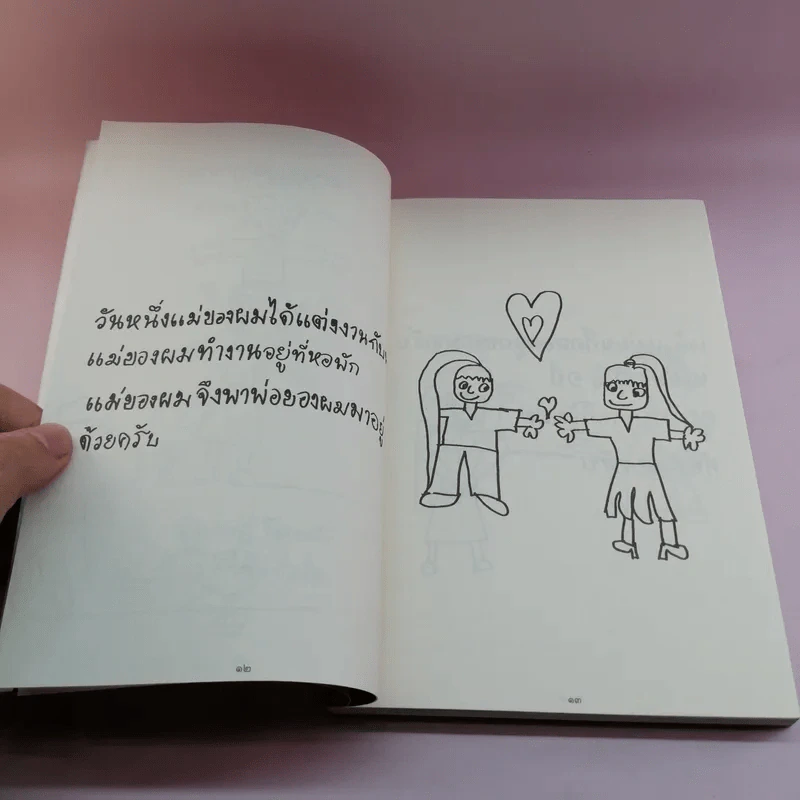 วันหนึ่งแม่ของผมได้แต่งงานกับ
แม่ของผมทำงานอยู่ที่หอพัก
แม่ของผมจึงพาพ่อของผมมาอยู่
ด้วยครับ
๑๒
๑๓